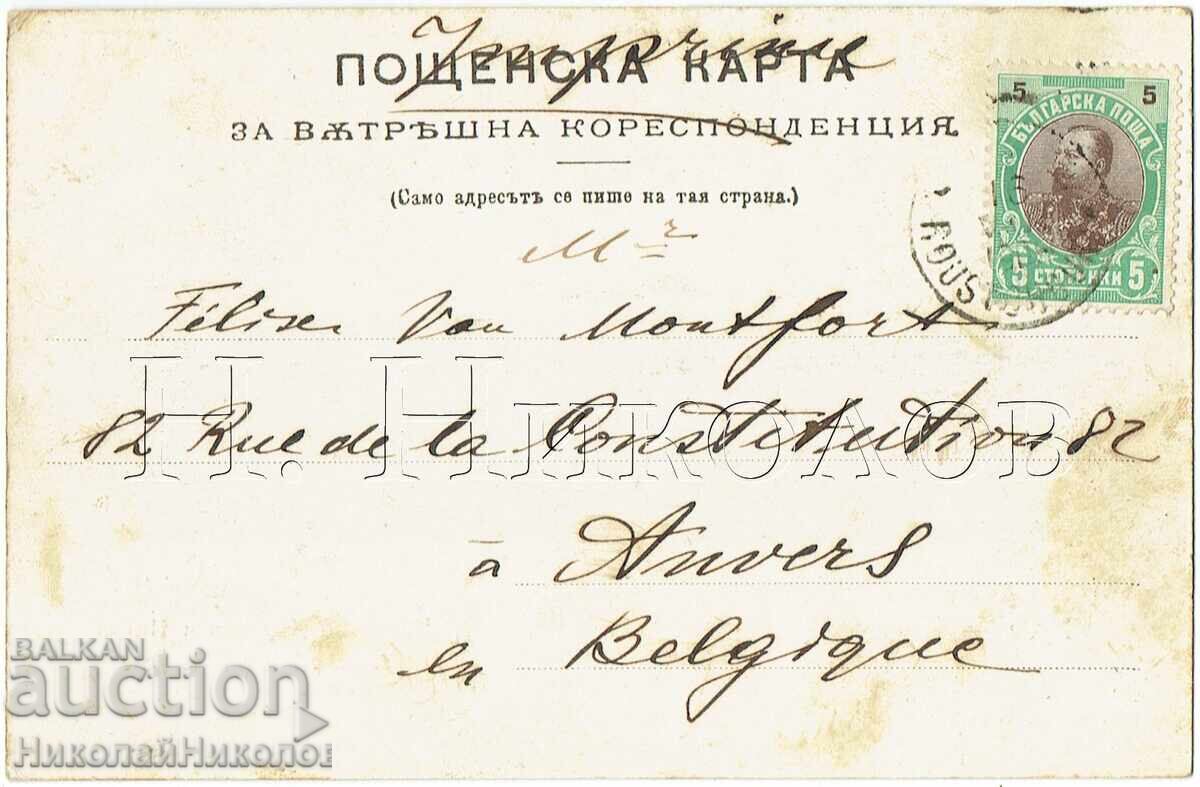 Imprimé
ПОЩЕНСКА КАРТА
ЗА ВѪТРѢШНА КОРЕСПОНДЕНЦИЯ.
(Само адресътъ се пише на тая страна.)
5 5
БЪЛГАРСКА ПОЩА
5 СТОТИНКИ 5
ROUST
Mr
Van Montfort
82 Rue de la Constitution 82
à Anvers
en Belgique
Н. Николов
BALKAN
auction
НиколайНиколов